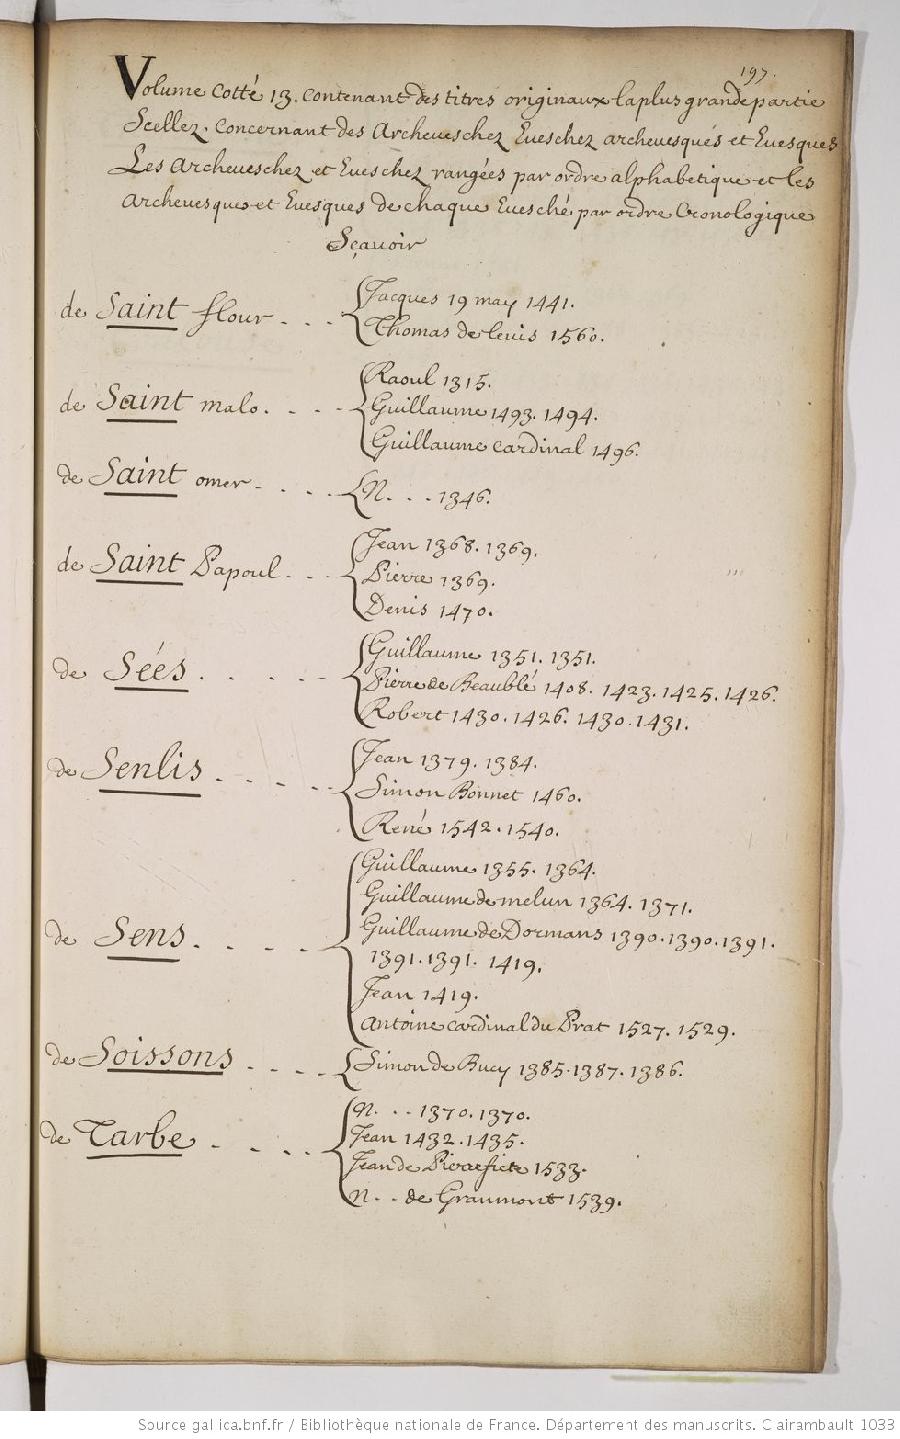 197.
Volume Cotté 13. Contenant des titres originaux la plus grande partie
Scellez. Concernant des Archeveschez Eveschez archevesqués et Evesques
Les Archeveschez et Eveschez rangées par ordre alphabetique et les
Archevesques et Evesques de chaque Evesché par ordre Cronologique
Sçavoir
de Saint flour - - - Jacques 19 may 1441.
Thomas de levis 1560.
de Saint malo. - - - Raoul 1315.
Guillaume 1493. 1494.
Guillaume cardinal 1496.
de Saint omer - - - - N. . . . 1346.
de Saint Papoul - - - Jean 1368. 1369.
Pierre 1369.
Denis 1470.
de Séés . - - - - Guillaume 1351. 1351.
Pierre de Beaublé 1408. 1423. 1425. 1426.
Robert 1430. 1426. 1430. 1431.
de Senlis - - - - Jean 1379. 1384.
Simon Bonnet 1460.
René 1542. 1540.
de Sens . - - - - Guillaume 1355. 1364.
Guillaume de melun 1364. 1371.
Guillaume de Dormans 1390. 1390. 1391.
1391. 1391. 1419.
Jean 1419.
Antoine Cardinal du Prat 1527. 1529.
de Soissons - - - - Simon de Bucy 1385. 1387. 1386.
de Tarbe - - - - N. . . . 1370. 1370.
Jean 1432. 1435.
Jean de Pierrefite 1533.
N. . . de Graumont 1539.
Source gallica.bnf.fr / Bibliothèque nationale de France. Département des manuscrits. Clairambault 1033